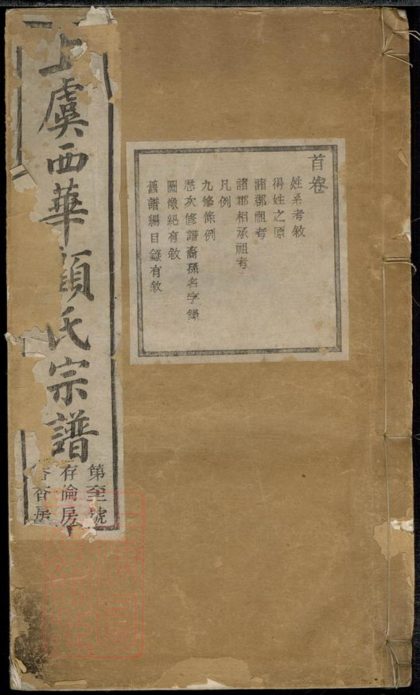 上虞西華顧氏宗譜
第至號
存倫房
首卷
姓系考敘
得姓之原
諸郡祖考
諸郡相承祖考
凡例
九修條例
歷次修譜裔孫名字錄
圖像總有敘
舊譜編目錄有敘